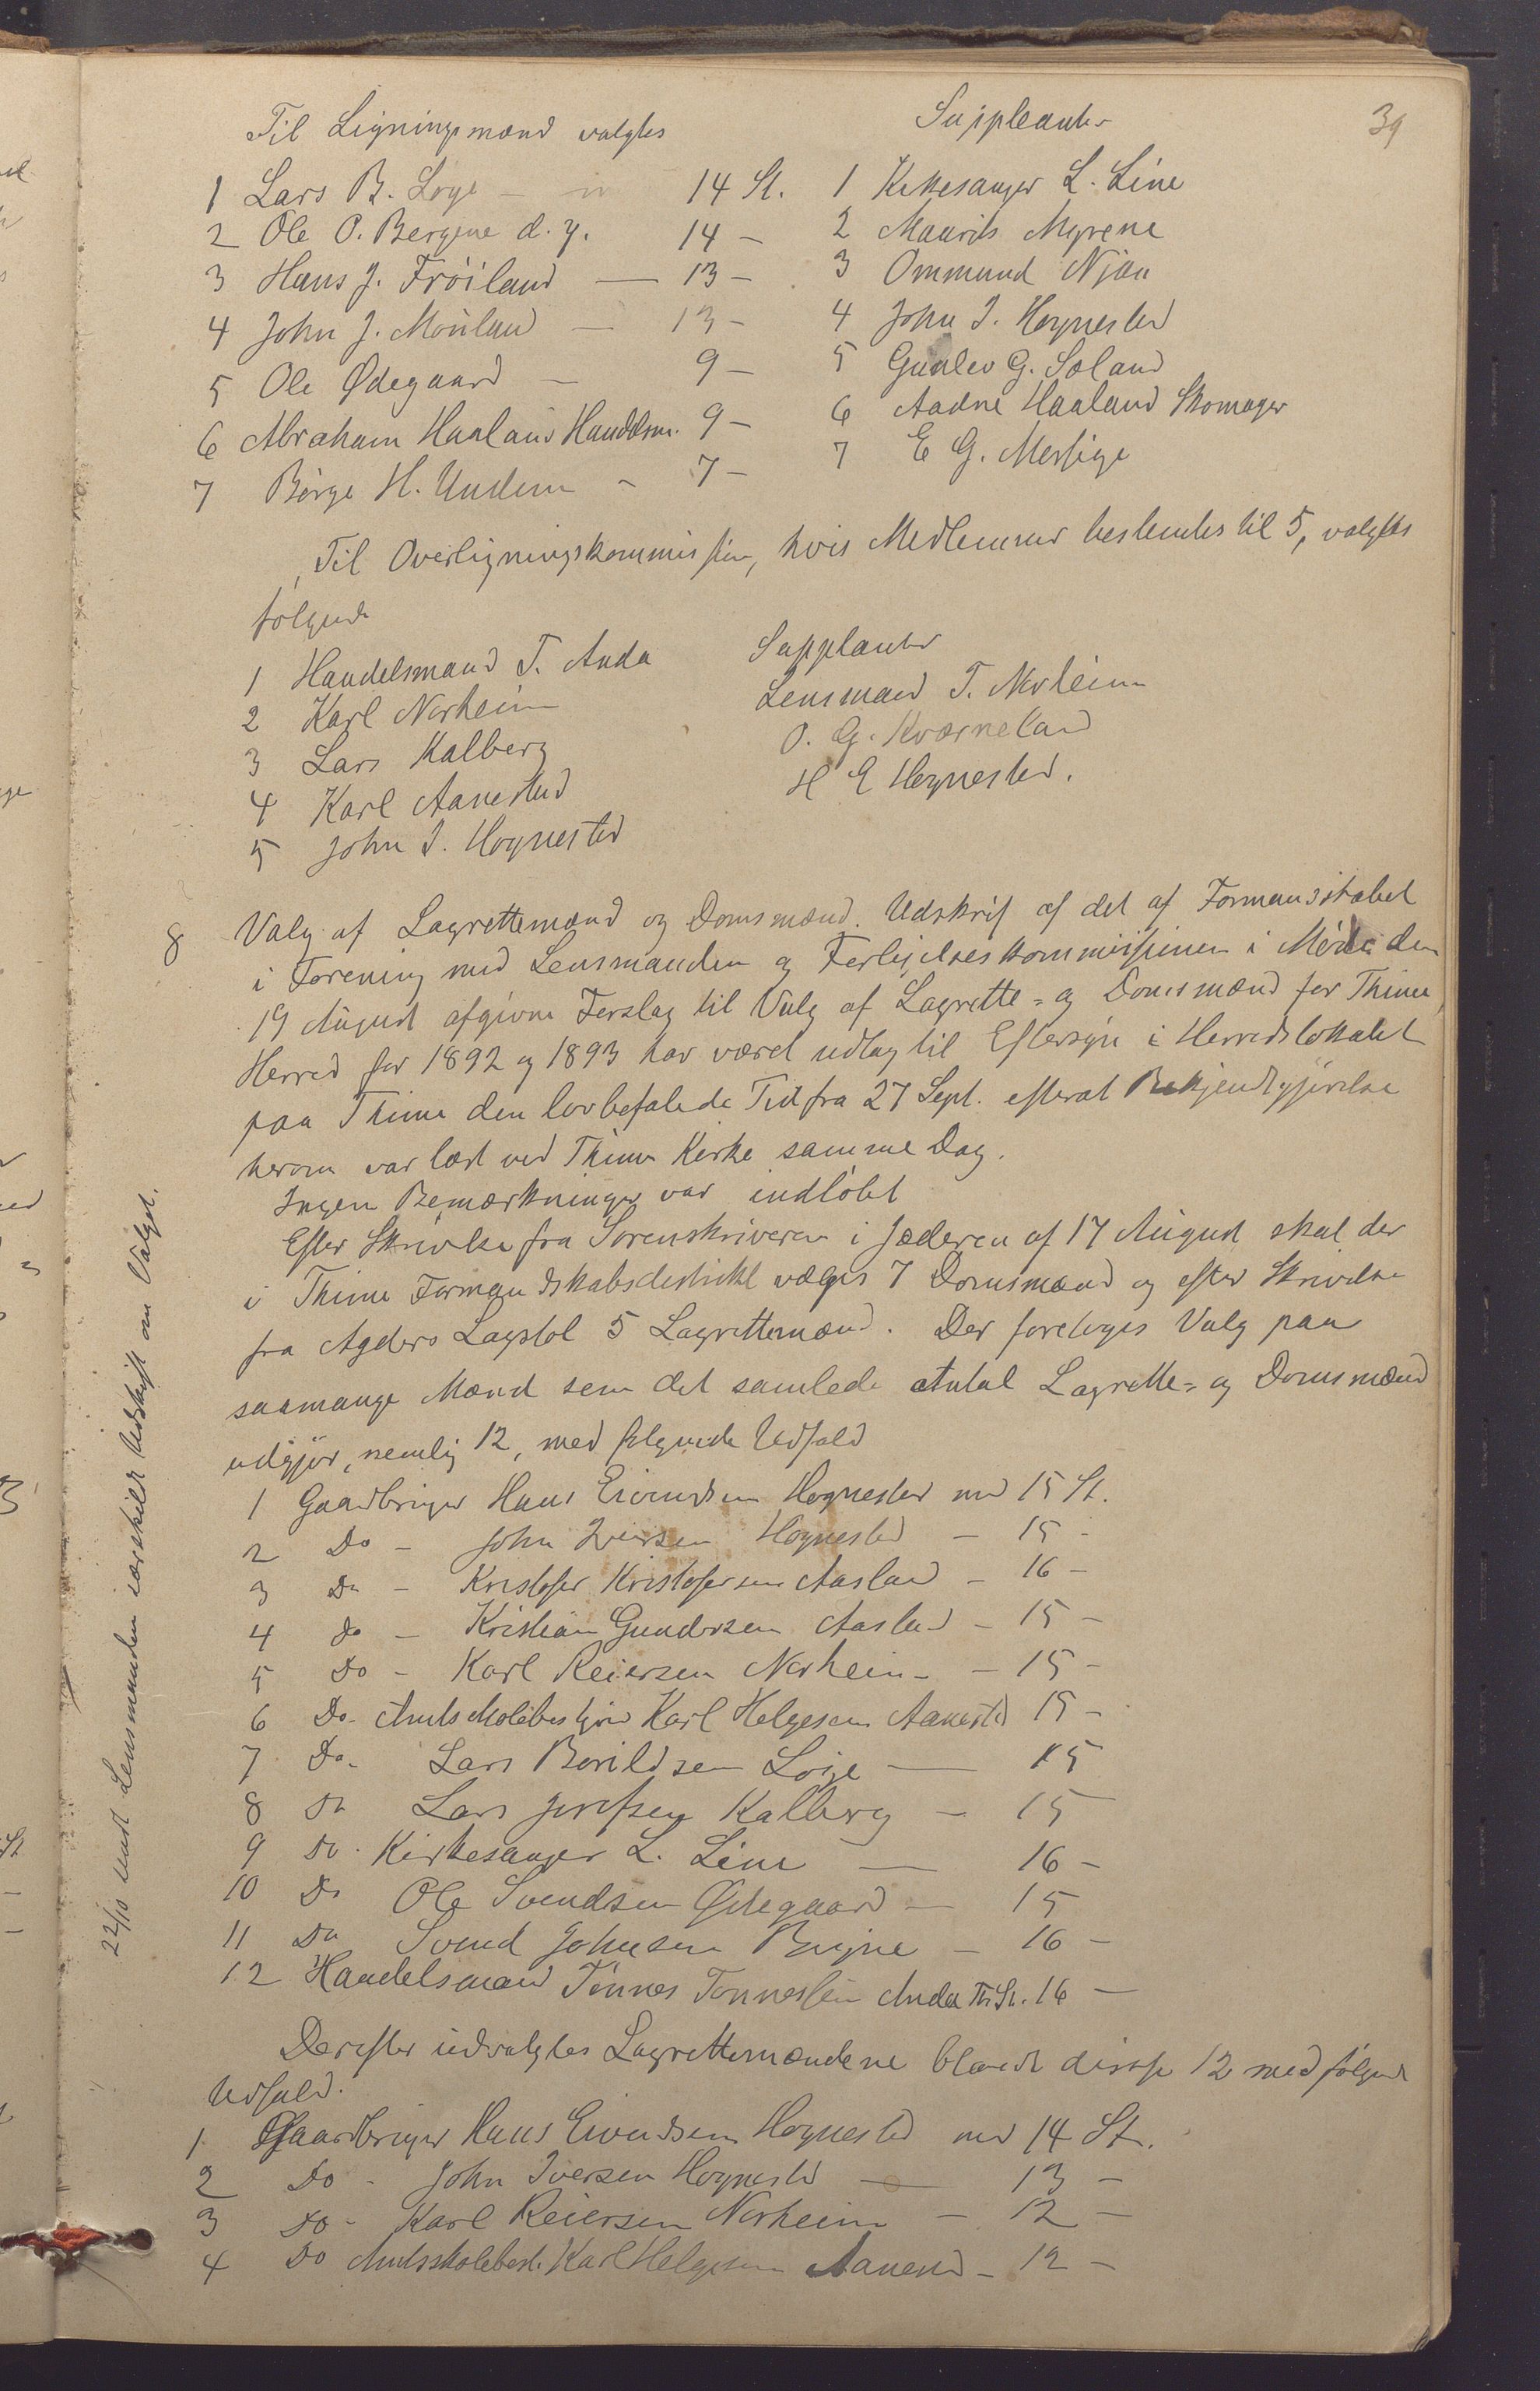 39
Til Ligningsmænd valgtes
Suppleanter
1 Lars B. Løge — m 14 St. 1 Kirkesanger L. Line
2 Ole O. Bergene d. y. 14 — 2 Maurits Myrene
3 Hans J. Frøiland — 13 — 3 Ommund Njaa
4 John J. Mauland — 13 — 4 John I. Hognestad
5 Ole Ødegaard — 9 — 5 Gunlev G. Søland
6 Abraham Haaland Handelsm. 9 — 6 Aadne Haaland Skomager
7 Børge H. Undem - 7 — 7 E G. Mossige
Til Overligningskommission, hvis Medlemmer bestemtes til 5, valgtes
følgende
1 Handelsmand T. Anda Suppleanter
2 Karl Norheim Lensmand T. Norheim
3 Lars Kalberg O. G. Kværneland
4 Karl Aanestad H E Hognestad.
5 John I. Hognestad
8 Valg af Lagrettemænd og Domsmænd. Udskrif af det af Formandskabet
i Forening med Lensmanden og Forligelseskommissionen i Møde den
19 August afgivne Forslag til Valg af Lagrette= og Domsmænd for Thime
Herred for 1892 og 1893 har været udlag til Eftersyn i Herredslokalet
paa Thime den lovbefalede Tid fra 27 Sept. efterat Bekjendtgjørelse
herom var læst ved Thime Kirke samme Dag.
Ingen Bemærkninger var indløbet
Efter Skrivelse fra Sorenskriveren i Jæderen af 17 August skal der
i Thime Formandskabsdistrikt vælges 7 Domsmænd og efter Skrivelse
fra Agders Lagstol 5 Lagrettemænd. Der foretoges Valg paa
saamange Mænd som det samlede Antal Lagrette= og Domsmænd
udgjør, nemlig 12, med følgende Udfald
1 Gaardbruger Hans Eivendsen Hognestad med 15 St.
2 Do - John Iversen Hognestad — 15 -
3 Do - Kristofer Kristofersen Aasland - 16 -
4 do - Kristian Gundersen Aasland - 15 -
5 Do - Karl Reiersen Norheim - - 15 -
6 Do - Amtsskolebestyrer Karl Helgesen Aanestad 15 -
7 Do - Lars Borildsen Løge — 15
8 Do Lars Josefsen Kalberg — 15
9 Do. Kirkesanger L. Line — 16 -
10 Do Ole Svendsen Ødegaard — 15
11 Do Svend Johnsen Bryne — 16 -
12 Handelsmand Tønnes Tønnessen Anda Th. St. 16 —
Derefter udvalgtes Lagrettemændene blandt disse 12 med følgende
Udfald.
1 Gaardbruger Hans Eivendsen Hognestad med 14 St.
2 Do - John Iversen Hognestad — 13 -
3 Do - Karl Reiersen Norheim — 12 -
4 Do Amtsskolebest. Karl Helgesen Aanestad - 12 -
22/10 sendt Lensmanden særskilt Udskrift om Valget.